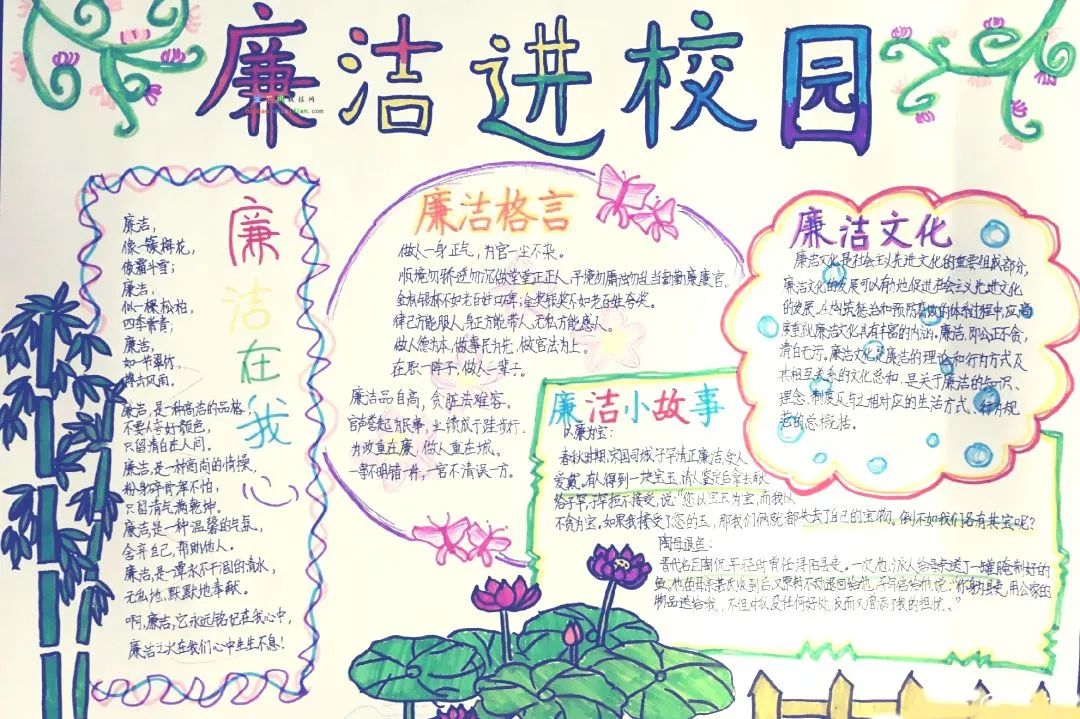 廉洁进校园
廉洁在我心
廉洁,
像一簇梅花,
傲霜斗雪;
廉洁,
似一棵松柏,
四季常青;
廉洁,
如一节翠竹,
搏击风雨。
廉洁,是一种高洁的品格,
不要人夸好颜色,
只留清白在人间。
廉洁,是一种高尚的情操,
粉身碎骨浑不怕,
只留清气满乾坤。
廉洁是一种温馨的气氛,
舍弃自己,帮助他人。
廉洁,是一潭永不干涸的清水,
无私地,默默地奉献。
啊,廉洁,它永远铭记在我心中,
廉洁之水在我们心中生生不息!
廉洁格言
做人一身正气,为官一尘不染。
顺境勿骄逆勿沉做堂堂正正人,平境勿庸浊勿乱当勤勤廉廉官。
金杯银杯不如老百姓口碑,金奖银奖不如老百姓夸奖。
律己方能服人,身正方能带人,无私方能感人。
做人德为本,做事民为先,做官法为上。
在职一阵子,做人一辈子。
廉洁品自高,贪脏法难容。
官声君起为民事,业绩成于践步行。
为政重在廉,做人重在诚。
一事不明错一件,一官不清误一方。
廉洁文化
廉洁文化是社会主义先进文化的重要组成部分,
廉洁文化的发展可以有力地促进社会主义先进文化
的发展。在构筑惩治和预防腐败的体系过程中,应高
度重视廉洁文化具有丰富的内涵。廉洁,即公正不贪,
清白无污。廉洁文化是廉洁的理论和行为方式及
其相互关系的文化总和,是关于廉洁的知识、
理念、制度及与之相对应的生活方式、行为规
范的总概括。
廉洁小故事
以廉为宝:
春秋时期,宋国司城子罕清正廉洁,受人
爱戴。有人得到一块宝玉,请人鉴定后拿去献
给子罕,子罕拒不接受,说:“您以宝玉为宝,而我以
不贪为宝,如果我接受了您的玉,那我们俩就都失去了自己的宝物。倒不如我们各有其宝呢?
陶母退鱼:
晋代名臣陶侃年轻时曾任浔阳县吏。一次,他派人给母亲送了一罐腌制好的
鱼,他的母亲湛氏收到后,又原封不动退回给他,并写信给他说:“你身为县吏,用公家的
物品送给我,不但对我没任何好处,反而又增添了我的担忧。”